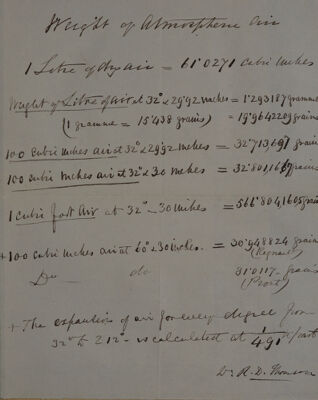 Weight of Atmospheric Air
1 Litre of dry air = 61·0271 Cubic Inches
Weight of Litre of air at 32° & 29·92 inches = 1·293187 gramme
(1 gramme = 15·438 grains) = 19·964209 grains
100 Cubic Inches air at 32° & 29·92 inches = 32·713697 grains
100 Cubic Inches air at 32° & 30 inches = 32·801167 grains
1 Cubic foot Air at 32° — 30 inches = 566·8041605 grains
+ 100 Cubic Inches air at 60° & 30 inches. = 30·948824 grains
(Regnault)
Do do 31·0117 grains
(Prout)
+ The expansion of air for every degree from
32° to 212° is calculated at 1/491 part
Dr R. D. Thomson